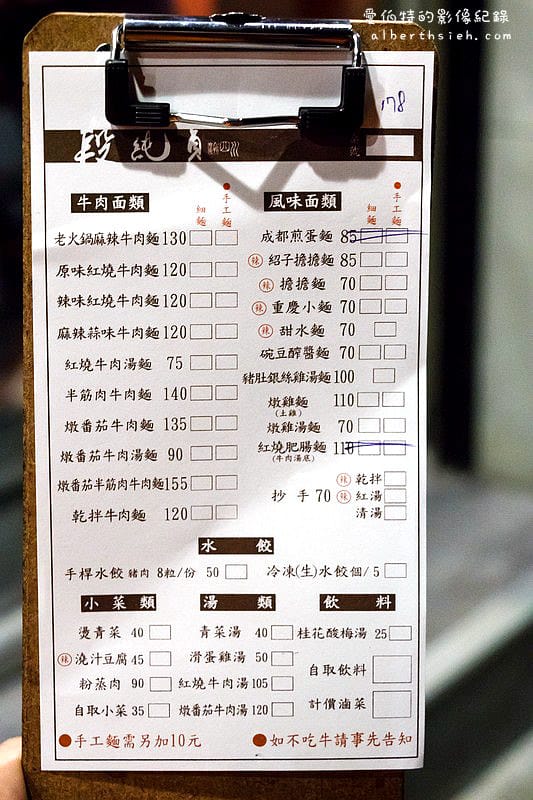 愛伯特的影像紀錄
alberthsieh.com
178
段純貞
牛肉面類
細麵
手工麵
老火鍋麻辣牛肉麵 130
原味紅燒牛肉麵 120
辣味紅燒牛肉麵 120
麻辣蒜味牛肉麵 120
紅燒牛肉湯麵 75
半筋肉牛肉麵 140
燉番茄牛肉麵 135
燉番茄牛肉湯麵 90
燉番茄半筋肉牛肉麵 155
乾拌牛肉麵 120
風味面類
細麵
手工麵
成都煎蛋麵 85
辣 紹子擔擔麵 85
辣 擔擔麵 70
辣 重慶小麵 70
辣 甜水麵 70
碗豆醡醬麵 70
豬肚銀絲雞湯麵 100
燉雞麵 110
(土雞)
燉雞湯麵 70
紅燒肥腸麵 110
(牛肉湯底)
辣 乾拌
抄手 70 辣 紅湯
清湯
水餃
手桿水餃 豬肉 8粒/份 50
冷凍(生)水餃個/5
小菜類
燙青菜 40
辣 澆汁豆腐 45
粉蒸肉 90
自取小菜 35
湯類
青菜湯 40
滑蛋雞湯 50
紅燒牛肉湯 105
燉番茄牛肉湯 120
飲料
桂花酸梅湯 25
自取飲料
計價滷菜
●手工麵需另加10元
●如不吃牛請事先告知